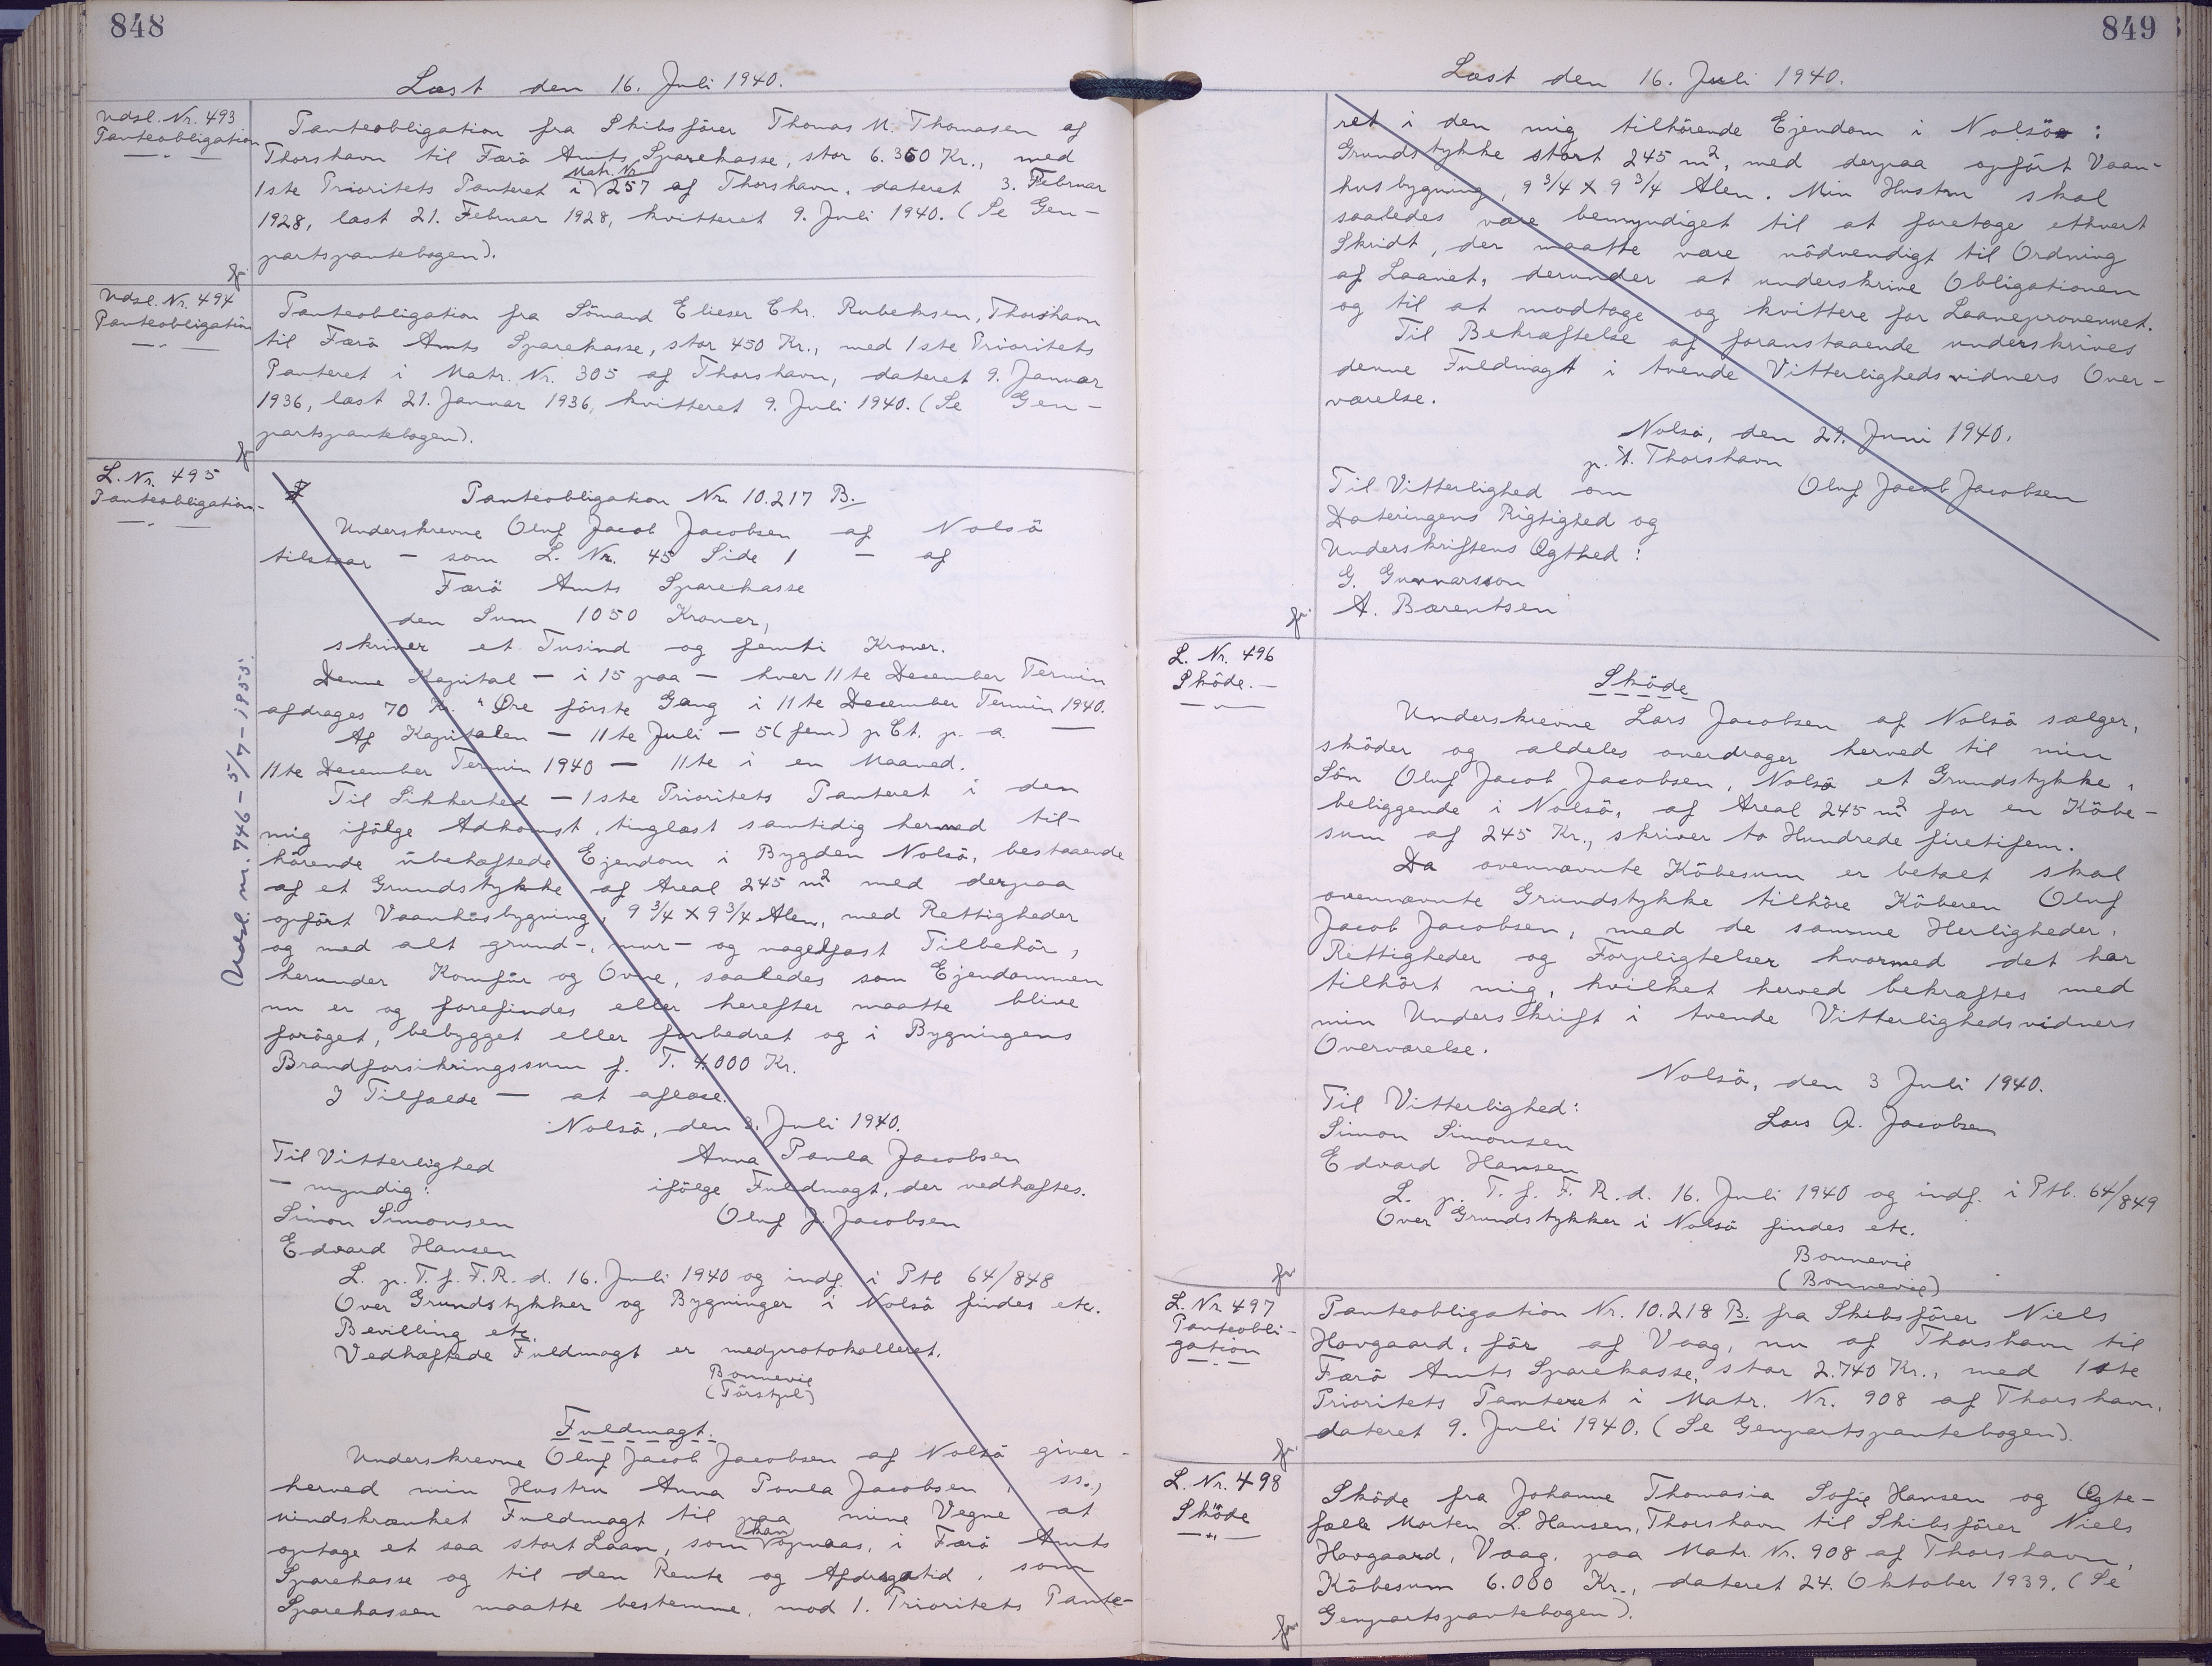 848
Læst den 16. Juli 1940.
Udsl. Nr. 493
Panteobligation
Panteobligation fra Skibsförer Thomas M. Thomasen af
Thorshavn til Færö Amts Sparekasse, stor 6.350 Kr., med
1ste Prioritets Panteret i Matr. Nr. 257 af Thorshavn, dateret 3. Februar
1928, læst 21. Februar 1928, kvitteret 9. Juli 1940. (Se Gen-
partspantebogen).
Udsl. Nr. 494
Panteobligation
Panteobligation fra Sömand Elieser Chr. Rubeksen, Thorshavn
til Færö Amts Sparekasse, stor 450 Kr., med 1ste Prioritets
Panteret i Matr. Nr. 305 af Thorshavn, dateret 9. Januar
1936, læst 21. Januar 1936, kvitteret 9. Juli 1940. (Se Gen-
partspantebogen).
L. Nr. 495
Panteobligation.
Udsl. nr. 746 - 5/7 - 1955.
Panteobligation Nr. 10.217 B.
Underskrevne Oluf Jacob Jacobsen af Nolsö
tilstaar - som L. Nr. 45 Side 1 - af
Færö Amts Sparekasse
den Sum 1050 Kroner,
skriver et Tusind og femti Kroner.
Denne Kapital - i 15 paa - hver 11te December Termin
afdrages 70 Kr. " Øre förste Gang i 11te December Termin 1940.
Af Kapitalen - 11te Juli - 5 (fem) p Ct. p. a. -
11te December Termin 1940 - 11te i en Maaned.
Til Sikkerhed - 1ste Prioritets Panteret i den
mig ifölge Adkomst, tinglæst samtidig hermed til-
hörende ubehæftede Ejendom i Bygden Nolsö, bestaaende
af et Grundstykke af Areal 245 m² med derpaa
opfört Vaanhusbygning, 9 3/4 x 9 3/4 Alen, med Rettigheder
og med alt grund-, mur- og nagelfast Tilbehör,
herunder Komfur og Ovne, saaledes som Ejendommen
nu er og forefindes eller herefter maatte blive
foröget, bebygget eller forbedret og i Bygningens
Brandforsikringssum f. T. 4.000 Kr.
I Tilfælde - at aflæse.
Nolsö, den 3. Juli 1940.
Til Vitterlighed
Anna Paula Jacobsen
- myndig:
ifölge Fuldmagt, der vedhæftes.
Simon Simonsen
Oluf J. Jacobsen
Edvard Hansen
L. p. T. f. F. R. d. 16. Juli 1940 og indf. i Ptb 64/848
Over Grundstykker og Bygninger i Nolsö findes etc.
Bevilling etc.
Vedhæftede Fuldmagt er medprotokolleret.
Bonnevie
Fuldmagt.
Underskrevne Oluf Jacob Jacobsen af Nolsö giver
herved min Hustru Anna Paula Jacobsen, ss.,
uindskrænket Fuldmagt til paa mine Vegne at
optage et saa stort Laan, som kan opnaas, i Færö Amts
Sparekasse og til den Rente og Afdragstid, som
Sparekassen maatte bestemme, mod 1. Prioritets Pante-
849
Læst den 16. Juli 1940.
ret i den mig tilhörende Ejendom i Nolsö:
Grundstykke stort 245 m², med derpaa opfört Vaan-
husbygning, 9 3/4 x 9 3/4 Alen. Min Hustru skal
saaledes være bemyndiget til at foretage ethvert
Skridt, der maatte være nödvendigt til Ordning
af Laanet, derunder at underskrive Obligationen
og til at modtage og kvittere for Laaneprovenuet.
Til Bekræftelse af foranstaaende underskrives
denne Fuldmagt i tvende Vitterlighedsvidners Over-
værelse.
Nolsö, den 29. Juni 1940.
p. t. Thorshavn
Til Vitterlighed om
Oluf Jacob Jacobsen
Dateringens Rigtighed og
Underskriftens Ægthed:
G. Gunnarsson
A. Bærentsen
L. Nr. 496
Sköde.-
Sköde
Underskrevne Lars Jacobsen af Nolsö sælger,
sköder og aldeles overdrager herved til min
Sön Oluf Jacob Jacobsen, Nolsö et Grundstykke,
beliggende i Nolsö, af Areal 245 m² for en Köbe-
sum af 245 Kr., skriver to Hundrede firetifem.
Da ovennævnte Köbesum er betalt skal
ovennævnte Grundstykke tilhöre Köberen Oluf
Jacob Jacobsen, med de samme Herligheder,
Rettigheder og Forpligtelser hvormed det har
tilhört mig, hvilket herved bekræftes med
min Underskrift i tvende Vitterlighedsvidners
Overværelse.
Nolsö, den 3 Juli 1940.
Til Vitterlighed:
Lars A. Jacobsen
Simon Simonsen
Edvard Hansen
L. p. T. f. F. R. d. 16. Juli 1940 og indf. i Ptb. 64/849
Over Grundstykker i Nolsö findes etc.
Bonnevie
(Bonnevie)
L. Nr 497
Panteobli-
gation
Panteobligation Nr. 10.218 B. fra Skibsförer Niels
Hovgaard, för af Vaag, nu af Thorshavn til
Færö Amts Sparekasse, stor 2.740 Kr., med 1ste
Prioritets Panteret i Matr. Nr. 908 af Thorshavn,
dateret 9. Juli 1940. (Se Genpartspantebogen).
L. Nr. 498
Sköde
Sköde fra Johanne Thomasia Sofie Hansen og Ægte-
fælle Morten L. Hansen, Thorshavn til Skibsförer Niels
Hovgaard, Vaag, paa Matr. Nr. 908 af Thorshavn,
Köbesum 6.000 Kr., dateret 24. Oktober 1939. (Se
Genpartspantebogen).